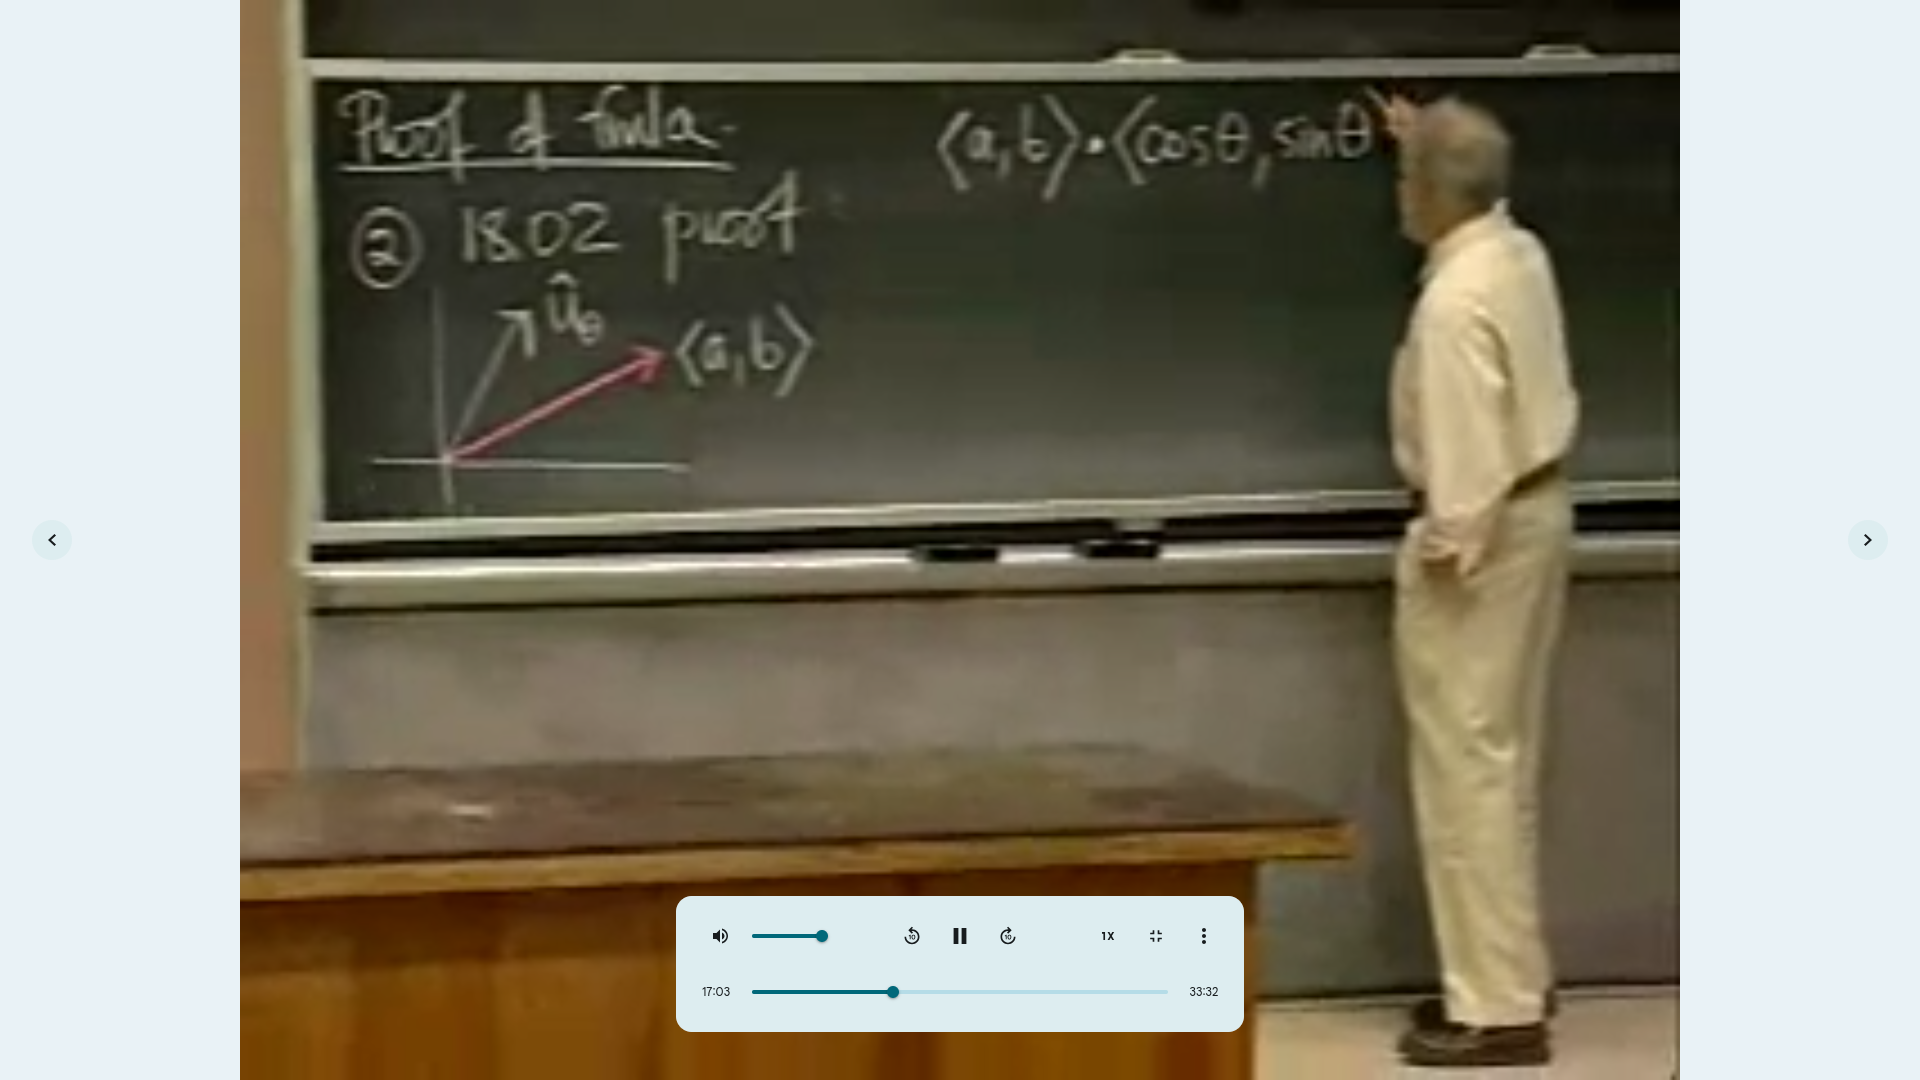 Proof of fmla.
② 18.02 proof
û_θ
⟨a,b⟩
⟨a,b⟩•⟨cosθ, sinθ
10
10
1X
17:03
33:32